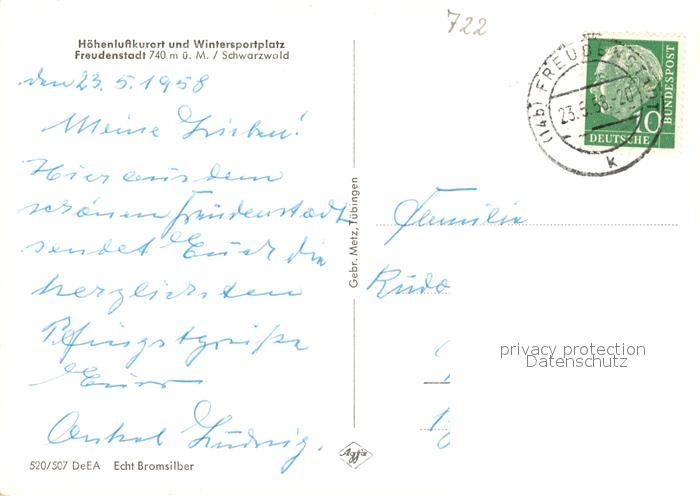 722
Höhenluftkurort und Wintersportplatz
Freudenstadt 740 m ü. M. / Schwarzwald
den 23. 5. 1958
Meine Lieben!
Hier aus dem
schönen Freudenstadt
sendet Euch die
herzlichsten
Pfingstgrüße
Euer
Onkel Ludwig.
520/507 DeEA Echt Bromsilber
Gebr. Metz, Tübingen
Agfa
(14b) FREUDENSTADT
23.5.58.-20
k
10
DEUTSCHE
BUNDESPOST
Familie
Rudo
privacy protection
Datenschutz